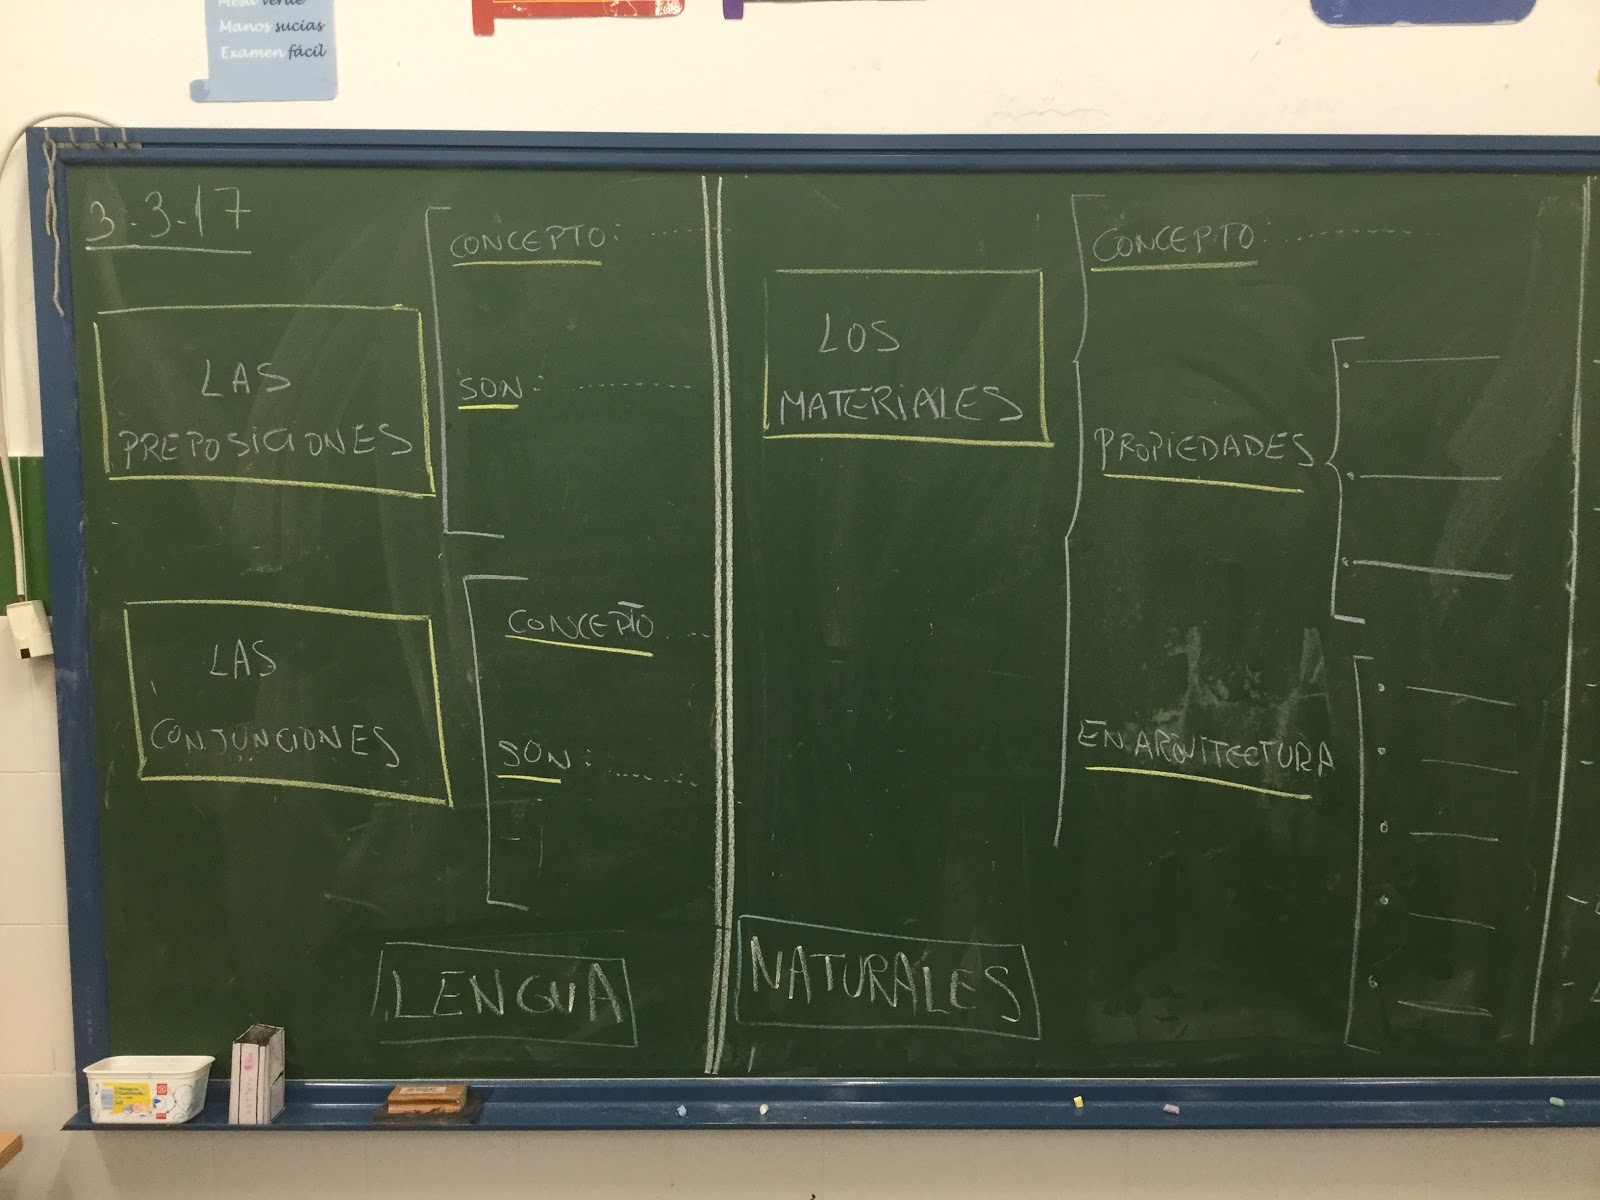 Mesa verde
Manos sucias
Examen fácil
3-3-17
LAS
PREPOSICIONES
CONCEPTO:
SON:
LAS
CONJUNCIONES
CONCEPTO
SON:
LENGUA
LOS
MATERIALES
CONCEPTO:
PROPIEDADES
EN ARQUITECTURA
NATURALES